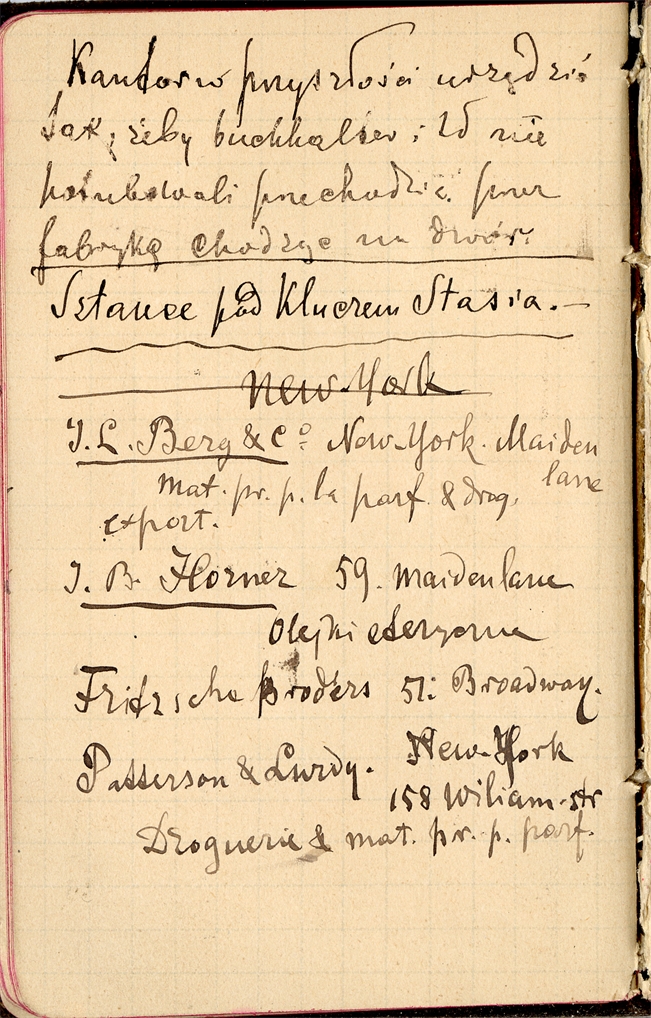 Kantor w przyszłości urządzić
tak, żeby buchhalter i td nie
potrzebowali przechodzić przez
fabrykę chodząc na dwór.
Sztance pod kluczem Stasia.—
New-York
J. L. Berg & Cº New-York. Maiden
lane
mat. pr. p. la parf. & drog.
export.
J. B. Horner 59. maidenlane
Olejki eteryczne
Fritzsche broders 51: Broadway.
Patterson & New-York
158 Wiliam-str
Droguerie & mat. pr. p. parf.